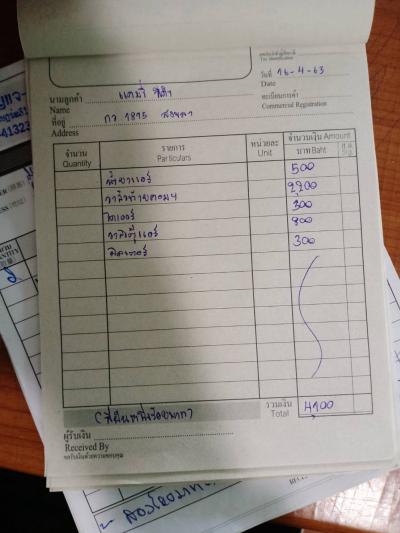 เลขประจำตัวผู้เสียภาษี
Tax Identification
วันที่ 16-4-63
Date
นามลูกค้า แคมรี่ สีดำ
Name
ทะเบียนการค้า
Commercial Registration
ที่อยู่ กว 1895 สงขลา
Address
จำนวน
Quantity
รายการ
Particulars
หน่วยละ
Unit
จำนวนเงิน Amount
บาท Baht
น้ำยาแอร์ 500
วาล์วท้ายคอมฯ 2,200
ไดเออร์ 300
วาล์วตู้แอร์ 800
ฟิลเตอร์ 300
(สี่พันหนึ่งร้อยบาท)
รวมเงิน
Total
4,100
ผู้รับเงิน
Received By
41322